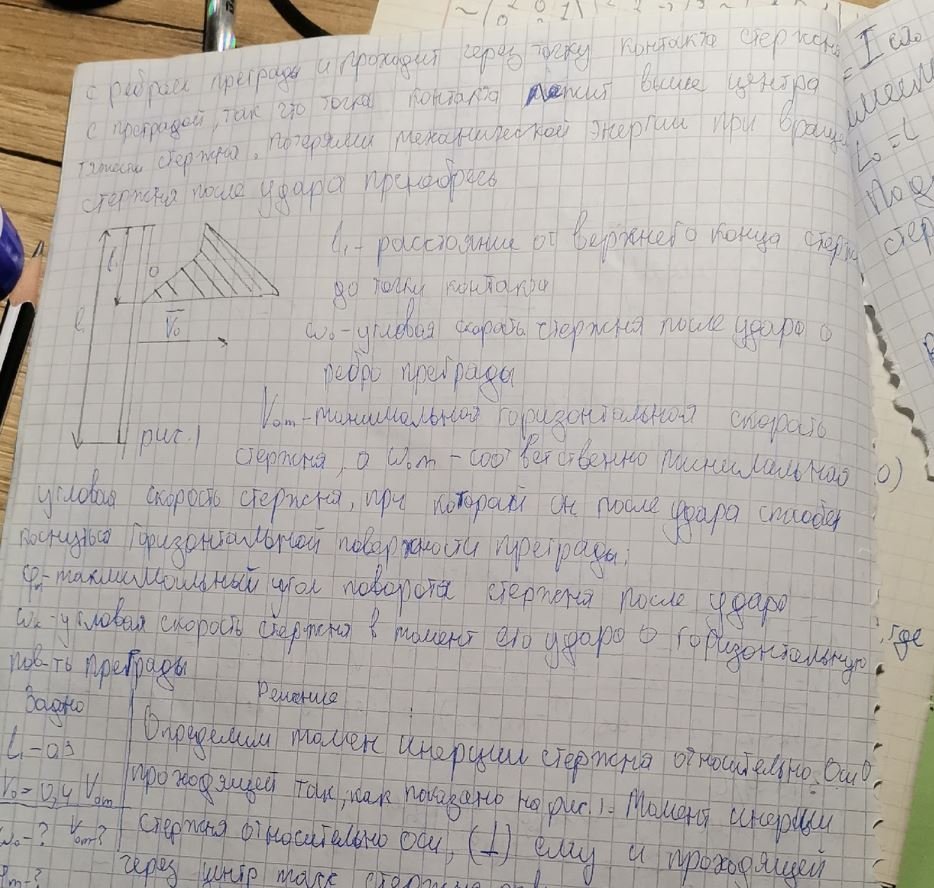 с ребром преграды и проходит через точку контакта стержня
с преградой, так что точка контакта лежит выше центра
тяжести стержня. Потерями механической энергии при вращ
стержня после удара пренебречь
l₁ - расстояние от верхнего конца стерж
до точки контакта
ω₀ - угловая скорость стержня после удара о
ребро преграды
V₀m - минимальная горизонтальная скорость
стержня, а ω₀m - соответственно минимальная
угловая скорость стержня, при которой он после удара способен
коснуться горизонтальной поверхности преграды;
φ - максимальный угол поворота стержня после удара
ωк - угловая скорость стержня в момент его удара о горизонтальную
пов-ть преграды
l₁
O
l
V̄₀
рис. 1
Задано
Решение
V₀ = 0,4 V₀m
ω₀ - ? V₀m - ?
Определим момен инерции стержня относительно оси O,
проходящей так, как показано на рис. 1. Момент инерции
стержня относительно оси, (⊥) ему и проходящей
через центр масс
= I
L₀ = L
стер
где